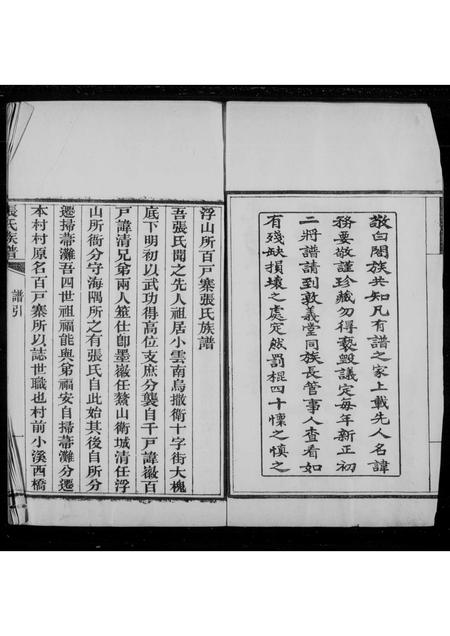 敬白閤族共知凡有譜之家上載先人名諱
務要敬謹珍藏勿得褻毀議定每年新正初
二將譜請到敦義堂同族長管事人查看如
有殘缺損壞之處定然罰棍四十懍之慎之
浮山所百戶寨張氏族譜
吾張氏聞之先人祖居小雲南烏撒衛十字街大槐
底下明初以武功得高位支庶分襲自千戶諱徽百
戶諱清兄弟兩人筮仕卽墨徽任鰲山衛城清任浮
山所銜分守海隅所之有張氏自此始其後自所分
遷掃帚灘吾四世祖福能與弟福安自掃帚灘分遷
本村村原名百戶寨所以誌世職也村前小溪西橋
張氏族譜
譜引